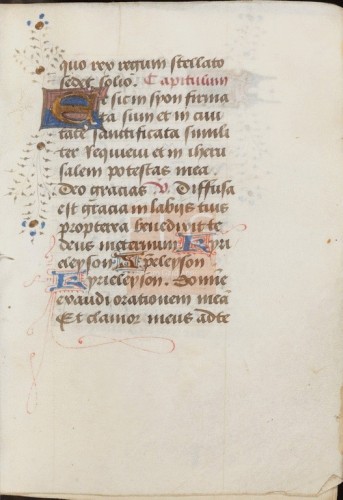 quo rex regum stellato
sedet solio. Capitulum
Et sic in syon firma
ta sum et in ciui
tate sanctificata simili
ter requieui et in iheru
salem potestas mea.
Deo gracias V. Diffusa
est gracia in labijs tuis
propterea benedixit te
deus in eternum Kyri
eleyson Xpeleyson
Kyrieleyson. Domine
exaudi orationem meā
Et clamor meus ad te